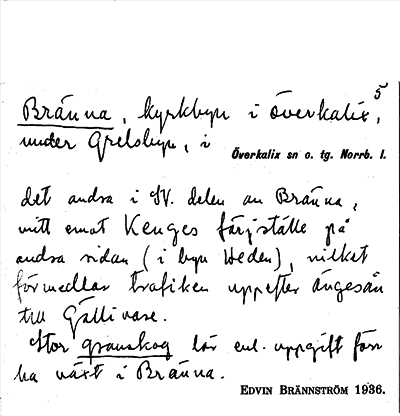 5
Bränna, kyrkbyn i Överkalix,
under Grelsbyn, i
Överkalix sn o. tg. Norrb. l.
det andra i SV. delen av Bränna,
mitt emot Kenges färjställe på
andra sidan (i byn Heden), vilket
förmedlar trafiken uppefter ängesån
till Gällivare.
Stor granskog lär enl. uppgift förr
ha växt i Bränna.
EDVIN BRÄNNSTRÖM 1936.